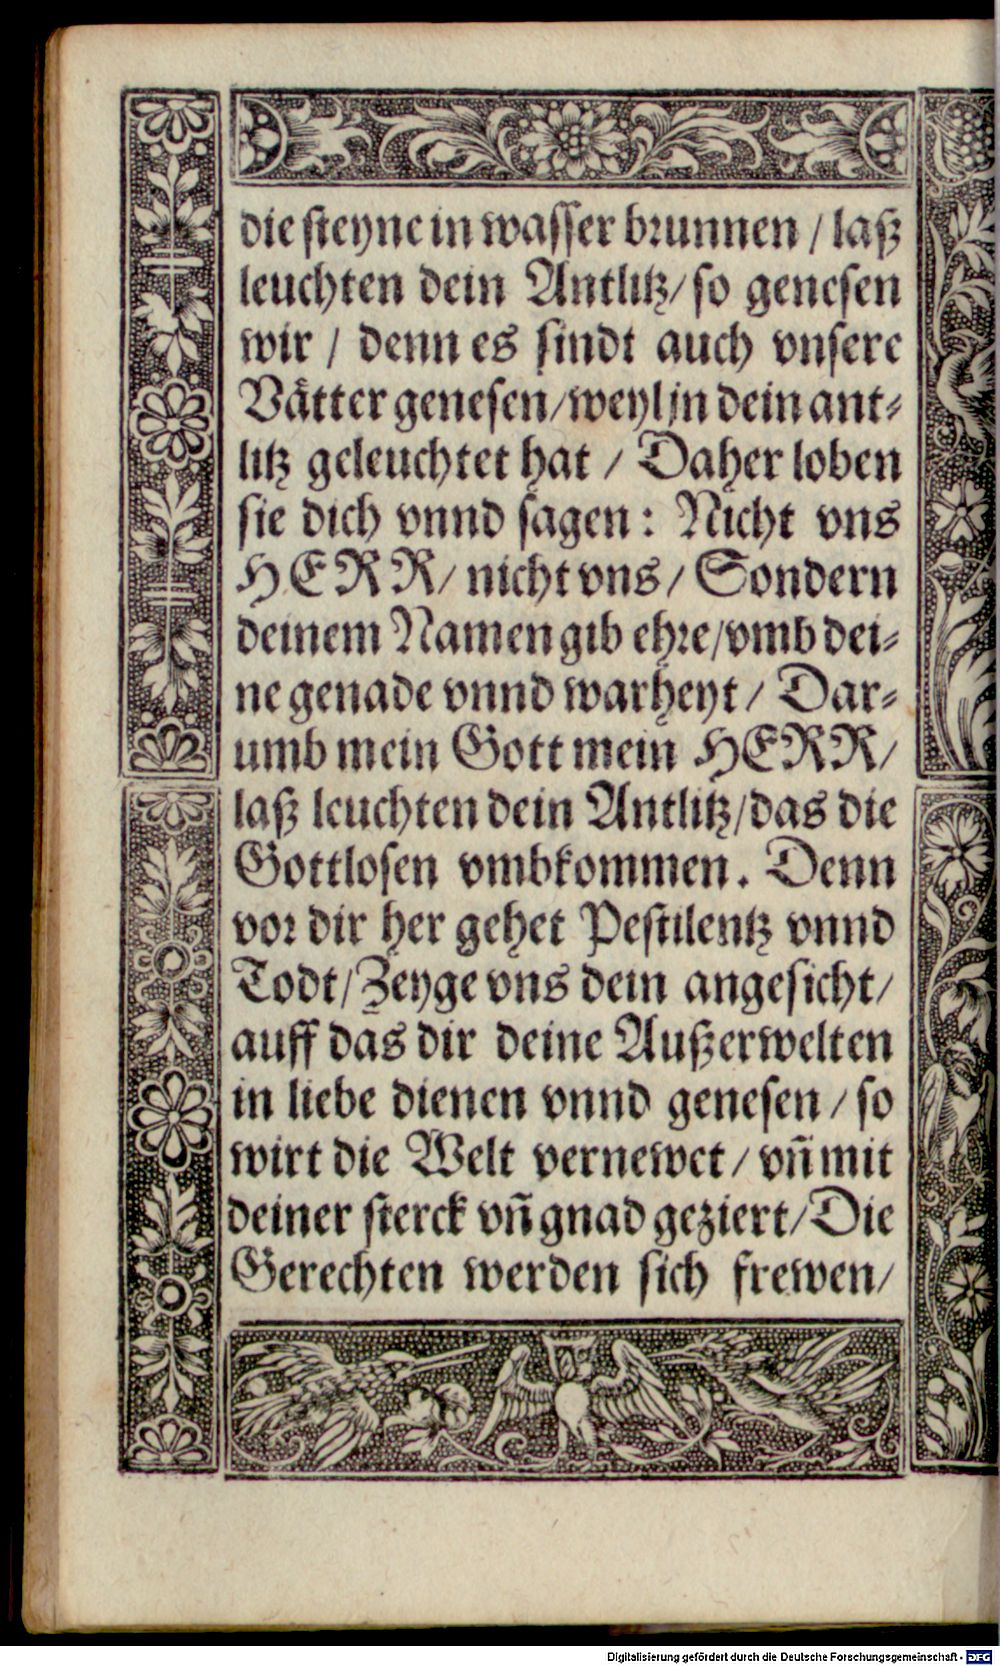 die steyne in wasser brunnen / laß
leuchten dein Antlitz / so genesen
wir / denn es sindt auch vnsere
Vätter genesen / weyl jn dein ant-
litz geleuchtet hat / Daher loben
sie dich vnnd sagen: Nicht vns
HERR / nicht vns / Sondern
deinem Namen gib ehre / vmb dei-
ne genade vnnd warheyt / Dar-
umb mein Gott mein HERR /
laß leuchten dein Antlitz / das die
Gottlosen vmbkommen. Denn
vor dir her gehet Pestilentz vnnd
Todt / Zeyge vns dein angesicht /
auff das dir deine Außerwelten
in liebe dienen vnnd genesen / so
wirt die Welt vernewet / vñ mit
deiner sterck vñ gnad geziert / Die
Gerechten werden sich frewen /
Digitalisierung gefördert durch die Deutsche Forschungsgemeinschaft - DFG